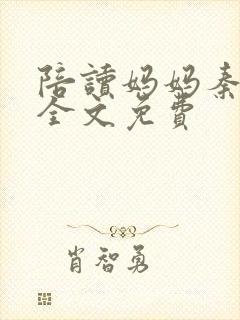 陪讀妈妈秦
全文免費
肖智勇